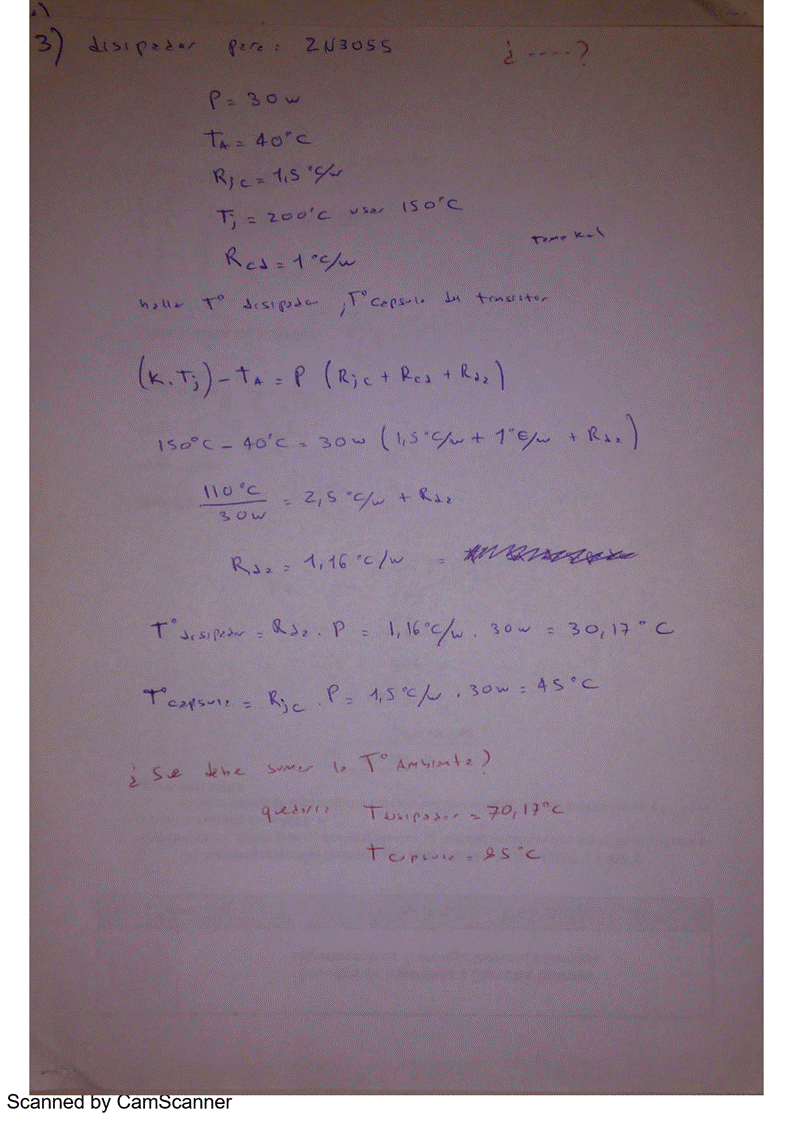 3) disipador para: 2N3055 ¿ ----?
P = 30w
TA = 40°C
Rjc = 1,5 °C/w
Tj = 200°C usar 150°C
Rcd = 1 °C/w
hallar T° disipador, T° capsula del transistor
(K.Tj) - TA = P (Rjc + Rcd + Rdz)
150°C - 40°C = 30w (1,5 °C/w + 1 °C/w + Rdz)
110°C / 30w = 2,5 °C/w + Rdz
Rdz = 1,16 °C/w =
T° disipador = Rdz . P = 1,16 °C/w . 30w = 30,17 °C
T° capsula = Rjc . P = 1,5 °C/w . 30w = 45 °C
¿ Se debe sumar la T° Ambiente?
quedaria T disipador = 70,17 °C
T capsula = 85 °C
Scanned by CamScanner